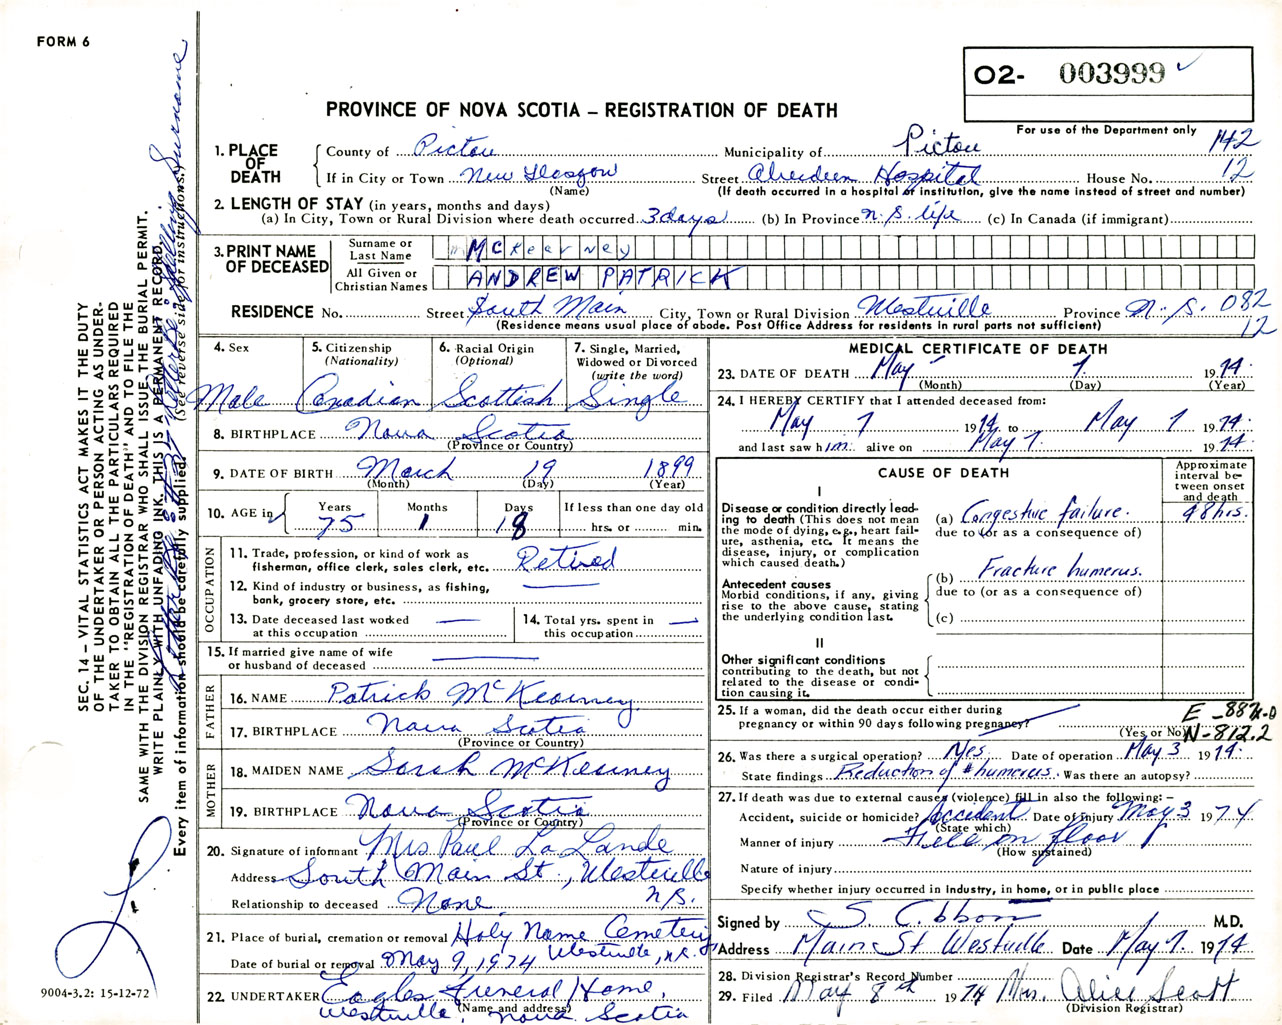 FORM 6
O2- 003999
PROVINCE OF NOVA SCOTIA – REGISTRATION OF DEATH
For use of the Department only
142
12
1. PLACE OF DEATH
County of Pictou Municipality of Pictou
If in City or Town New Glasgow Street Aberdeen Hospital House No.
(Name) (If death occurred in a hospital or institution, give the name instead of street and number)
2. LENGTH OF STAY (in years, months and days)
(a) In City, Town or Rural Division where death occurred 3 days (b) In Province N.S. life (c) In Canada (if immigrant)
3. PRINT NAME OF DECEASED
Surname or Last Name McKearney
All Given or Christian Names ANDREW PATRICK
RESIDENCE No. Street South Main City, Town or Rural Division Westville Province N.S. 082
12
(Residence means usual place of abode. Post Office Address for residents in rural parts not sufficient)
4. Sex
Male
5. Citizenship (Nationality)
Canadian
6. Racial Origin (Optional)
Scottish
7. Single, Married, Widowed or Divorced (write the word)
Single
8. BIRTHPLACE Nova Scotia
(Province or Country)
9. DATE OF BIRTH March 19 1899
(Month) (Day) (Year)
10. AGE in Years Months Days If less than one day old
75 1 18 hrs. or min.
OCCUPATION
11. Trade, profession, or kind of work as fisherman, office clerk, sales clerk, etc. Retired
12. Kind of industry or business, as fishing, bank, grocery store, etc.
13. Date deceased last worked at this occupation
14. Total yrs. spent in this occupation
15. If married give name of wife or husband of deceased
FATHER
16. NAME Patrick McKearney
17. BIRTHPLACE Nova Scotia
(Province or Country)
MOTHER
18. MAIDEN NAME Sarah McKearney
19. BIRTHPLACE Nova Scotia
(Province or Country)
20. Signature of informant Mrs Paul La Lande
Address South Main St., Westville N.S.
Relationship to deceased None
21. Place of burial, cremation or removal Holy Name Cemetery
Westville, N.S.
Date of burial or removal May 9, 1974
22. UNDERTAKER Eagles Funeral Home,
(Name and address)
Westville, Nova Scotia
MEDICAL CERTIFICATE OF DEATH
23. DATE OF DEATH May 7 1974
(Month) (Day) (Year)
24. I HEREBY CERTIFY that I attended deceased from:
May 7 1974 to May 7 1974
and last saw him alive on May 7 1974
CAUSE OF DEATH
Approximate interval between onset and death
I
Disease or condition directly leading to death (This does not mean the mode of dying, e.g., heart failure, asthenia, etc. It means the disease, injury, or complication which caused death.)
(a) Congestive failure. 48 hrs.
due to (or as a consequence of)
Antecedent causes
Morbid conditions, if any, giving rise to the above cause, stating the underlying condition last.
(b) Fracture humerus.
due to (or as a consequence of)
(c)
II
Other significant conditions contributing to the death, but not related to the disease or condition causing it.
25. If a woman, did the death occur either during pregnancy or within 90 days following pregnancy?
(Yes or No)
N-812.2
26. Was there a surgical operation? Yes. Date of operation May 3 1974
State findings Reduction of # humerus. Was there an autopsy?
27. If death was due to external causes (violence) fill in also the following: –
Accident, suicide or homicide? Accident Date of Injury May 3 1974
(State which)
Manner of injury Fell on floor
(How sustained)
Nature of injury
Specify whether injury occurred in industry, in home, or in public place
Signed by M.D.
Address Main St Westville Date May 7. 1974
28. Division Registrar's Record Number
29. Filed May 8th 1974 Mrs. Alice Scott
(Division Registrar)
SEC. 14 – VITAL STATISTICS ACT MAKES IT THE DUTY
OF THE UNDERTAKER OR PERSON ACTING AS UNDER-
TAKER TO OBTAIN ALL THE PARTICULARS REQUIRED
IN THE "REGISTRATION OF DEATH" AND TO FILE THE
SAME WITH THE DIVISION REGISTRAR WHO SHALL ISSUE THE BURIAL PERMIT.
WRITE PLAINLY WITH UNFADING INK. THIS IS A PERMANENT RECORD.
Every item of information should be carefully supplied. (See reverse side for instructions.)
Surname
9004-3.2: 15-12-72